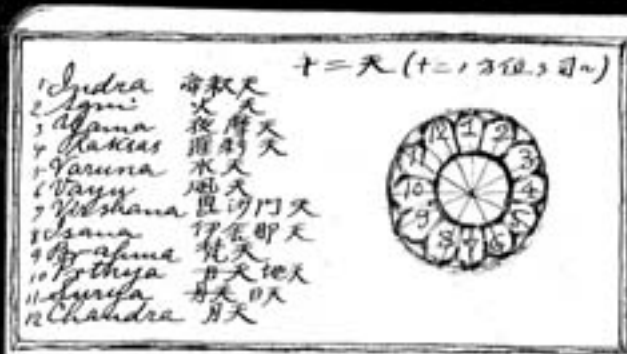 十二天(十二ノ方位ヲ司ル)
1 Indra 帝釈天
2 Agni 火天
3 Yama 夜摩天
4 Raksas 羅刹天
5 Varuna 水天
6 Vayu 風天
7 毘沙門天
8 Isana 伊舎那天
9 Brahma 梵天
10 地天
11 Surya 日天
12 Chandra 月天
1
2
3
4
5
6
7
8
9
10
11
12